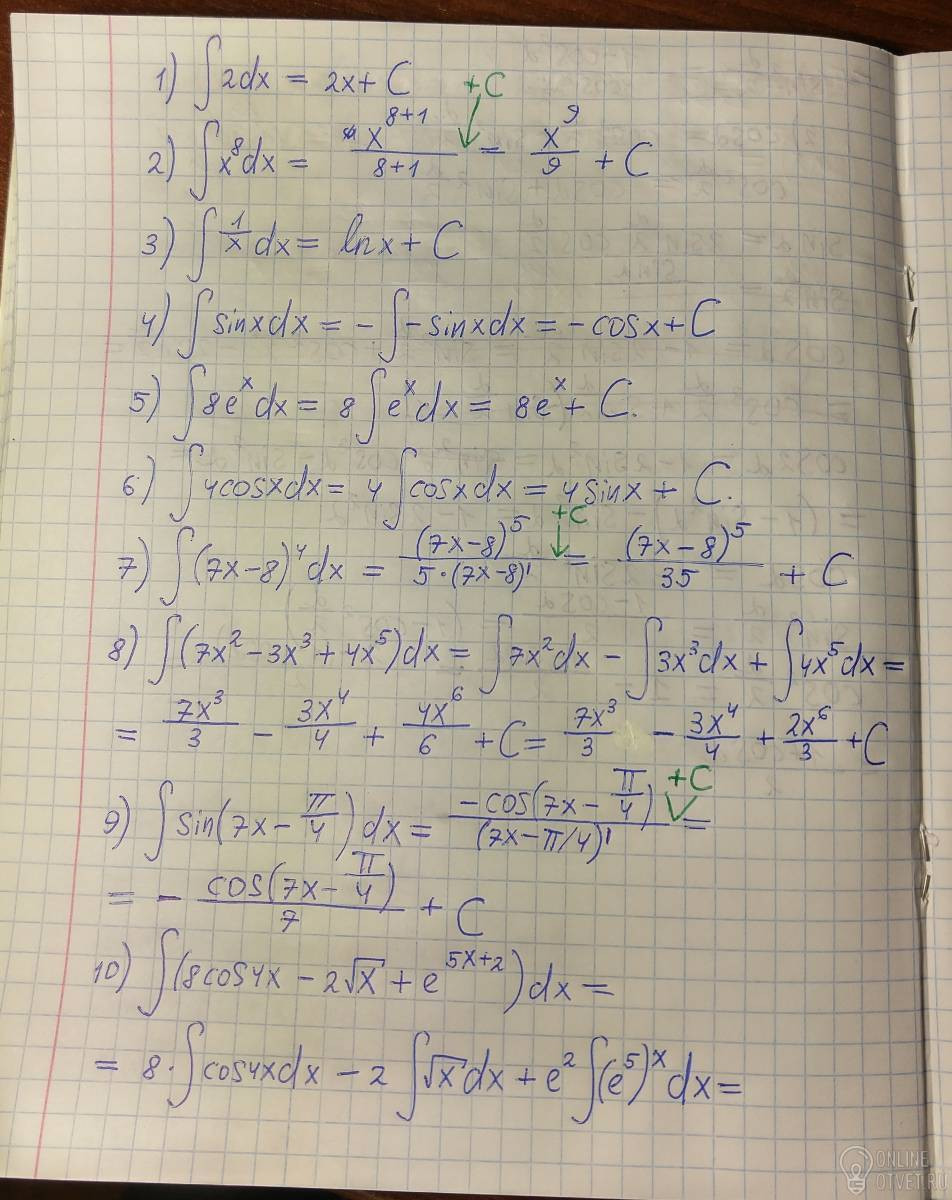 1) ∫2dx = 2x + C
+C
2) ∫x⁸dx = x⁸⁺¹/(8+1) = x⁹/9 + C
3) ∫1/x dx = lnx + C
4) ∫sinxdx = -∫-sinxdx = -cosx + C
5) ∫8eˣdx = 8∫eˣdx = 8eˣ + C.
6) ∫4cosxdx = 4∫cosxdx = 4sinx + C.
+C
7) ∫(7x-8)⁴dx = (7x-8)⁵/(5·(7x-8)') = (7x-8)⁵/35 + C
8) ∫(7x²-3x³+4x⁵)dx = ∫7x²dx - ∫3x³dx + ∫4x⁵dx =
= 7x³/3 - 3x⁴/4 + 4x⁶/6 + C = 7x³/3 - 3x⁴/4 + 2x⁶/3 + C
+C
9) ∫sin(7x - π/4)dx = -cos(7x - π/4)/(7x-π/4)' =
= - cos(7x - π/4)/7 + C
10) ∫(8cos4x - 2√x + e⁵ˣ⁺²)dx =
= 8·∫cos4xdx - 2∫√x dx + e²∫(e⁵)ˣdx =
ONLINE
OTVET.RU